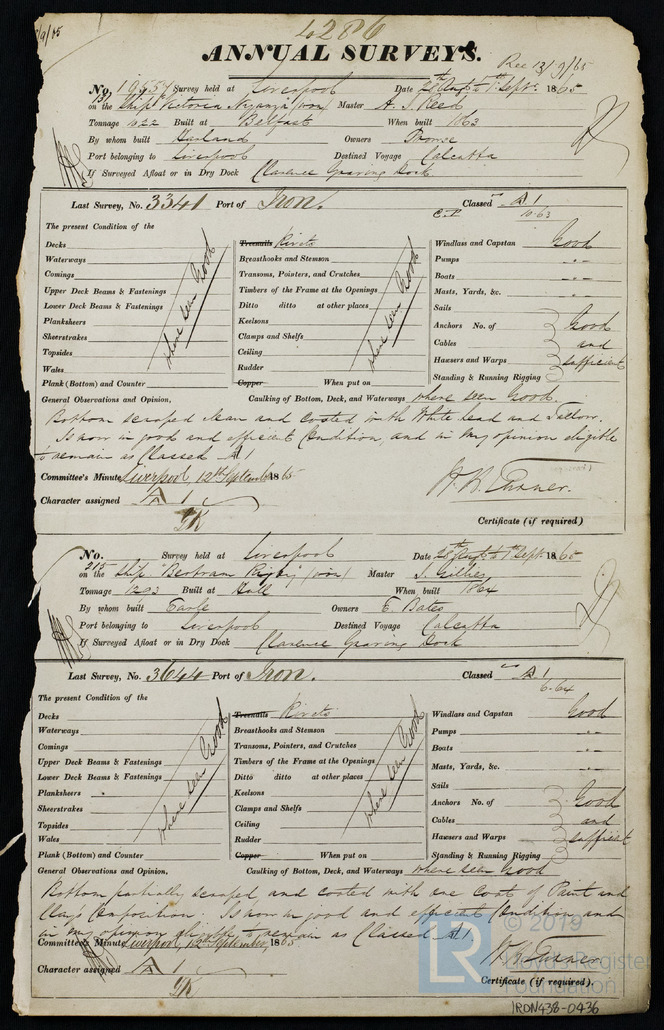 4286
ANNUAL SURVEYS.
Rec 13/9/65
No. 19557 Survey held at Liverpool Date 26th Augt to 7th Septr. 1865
on the Ship "Victoria Nyanza" (iron) Master A. J. Reed
Tonnage 1022 Built at Belfast When built 1863
By whom built Harland Owners
Port belonging to Liverpool Destined Voyage Calcutta
If Surveyed Afloat or in Dry Dock Clarence Graving Dock
Last Survey, No. 3341 Port of Iron. Classed A 1
10.63
The present Condition of the
Decks Treenails Rivets Windlass and Capstan Good
Waterways Breasthooks and Stemson Pumps " "
Comings Transoms, Pointers, and Crutches Boats " "
Upper Deck Beams & Fastenings Timbers of the Frame at the Openings Masts, Yards, &c. " "
Lower Deck Beams & Fastenings Ditto ditto at other places Sails
Planksheers Keelsons Anchors No. of Good
Sheerstrakes Clamps and Shelfs Cables and
Topsides Ceiling Hawsers and Warps sufficient
Wales Rudder Standing & Running Rigging
where seen Good where seen Good
Plank (Bottom) and Counter Copper When put on
General Observations and Opinion, Caulking of Bottom, Deck, and Waterways where seen Good.
Bottom scraped clean and coated with White lead and Tallow.
Is now in good and efficient Condition, and in my opinion eligible
to remain as Classed A 1
Committee's Minute Liverpool, 12th September 1865
Character assigned A 1
Certificate (if required)
No. Survey held at Liverpool Date 28th Augt to 7th Septr. 1865
215
on the Ship "Bertram Rigby" (iron) Master J. Gillies
Tonnage 1203 Built at Hull When built 1864
By whom built Earle Owners E. Bates
Port belonging to Liverpool Destined Voyage Calcutta
If Surveyed Afloat or in Dry Dock Clarence Graving Dock
Last Survey, No. 3644 Port of Iron. Classed A 1
6.64
The present Condition of the
Decks Treenails Rivets Windlass and Capstan Good
Waterways Breasthooks and Stemson Pumps " "
Comings Transoms, Pointers, and Crutches Boats " "
Upper Deck Beams & Fastenings Timbers of the Frame at the Openings Masts, Yards, &c. " "
Lower Deck Beams & Fastenings Ditto ditto at other places Sails
Planksheers Keelsons Anchors No. of Good
Sheerstrakes Clamps and Shelfs Cables and
Topsides Ceiling Hawsers and Warps sufficient
Wales Rudder Standing & Running Rigging
where seen Good where seen Good
Plank (Bottom) and Counter Copper When put on
General Observations and Opinion, Caulking of Bottom, Deck, and Waterways where seen Good
Bottom partially scraped, and coated with one Coat of Paint and
Clay Composition. Is now in good and efficient Condition, and
in my opinion eligible to remain as Classed A 1.
Committee's Minute Liverpool, 12th September, 1865
Character assigned A 1
Certificate (if required)
LR © 2019 Lloyd's Register Foundation
IRON438-0436